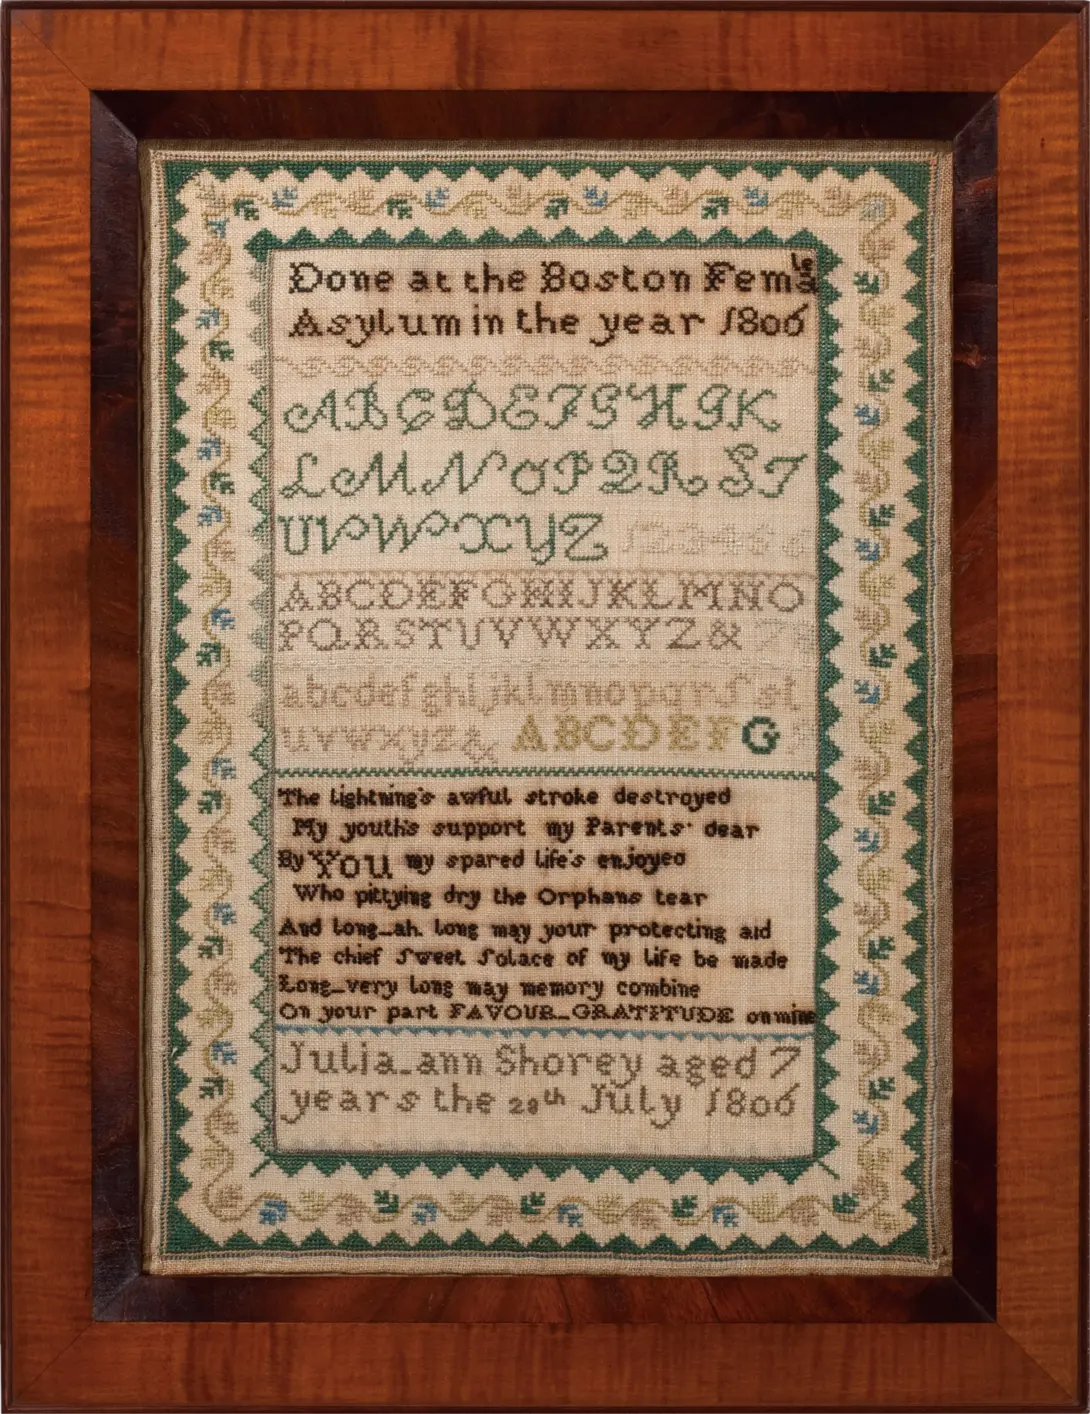 Done at the Boston Female
Asylum in the year 1806
ABCDEFGHIK
LMNOPQRST
UVWXYZ 123456
ABCDEFGHIJKLMNO
PQRSTUVWXYZ& 78
abcdefghijklmnopqrſst
uvwxyz& ABCDEFG
The lightning's awful stroke destroyed
My youth's support my Parents dear
By YOU my spared life's enjoyed
Who pittying dry the Orphans tear
And long_ah. long may your protecting aid
The chief ſweet ſolace of my life be made
Long_very long may memory combine
On your part FAVOUR_GRATITUDE on mine
Julia_ann Shorey aged 7
years the 28th July 1806